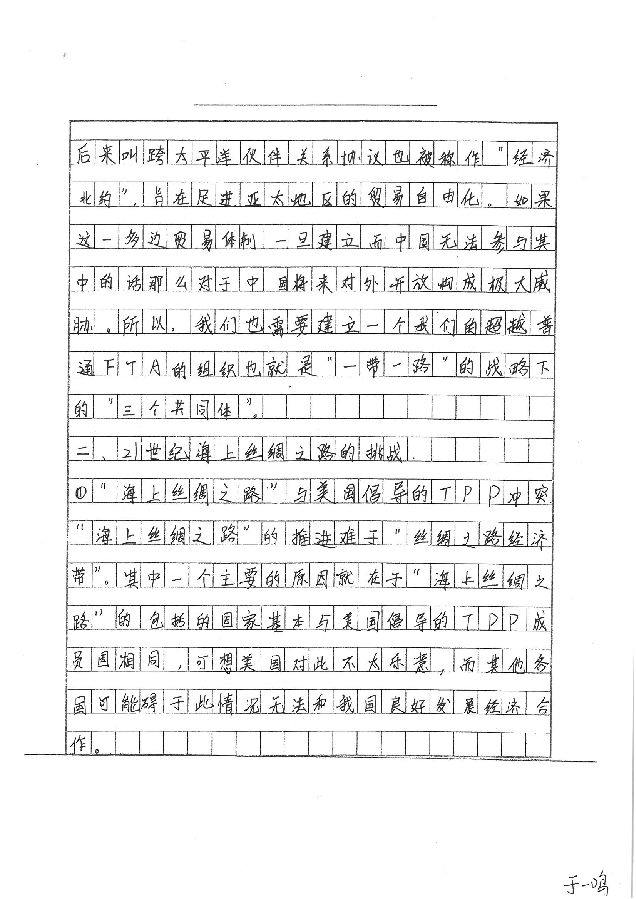 后来叫跨太平洋伙伴关系协议也被称作“经济
北约”，旨在促进亚太地区的贸易自由化。如果
这一多边贸易体制一旦建立而中国无法参与其
中的话那么对于中国将来对外开放构成极大威
胁。所以，我们也需要建立一个我们的超越普
通FTA的组织也就是“一带一路”的战略下
的“三个共同体”。
二、21世纪海上丝绸之路的挑战.
①“海上丝绸之路”与美国倡导的TPP冲突
“海上丝绸之路”的推进难于“丝绸之路经济
带”。其中一个主要的原因就在于“海上丝绸之
路”的包括的国家基本与美国倡导的TPP成
员国相同，可想美国对此不太乐意，而其他各
国可能碍于此情况无法和我国良好发展经济合
作。
于一鸣